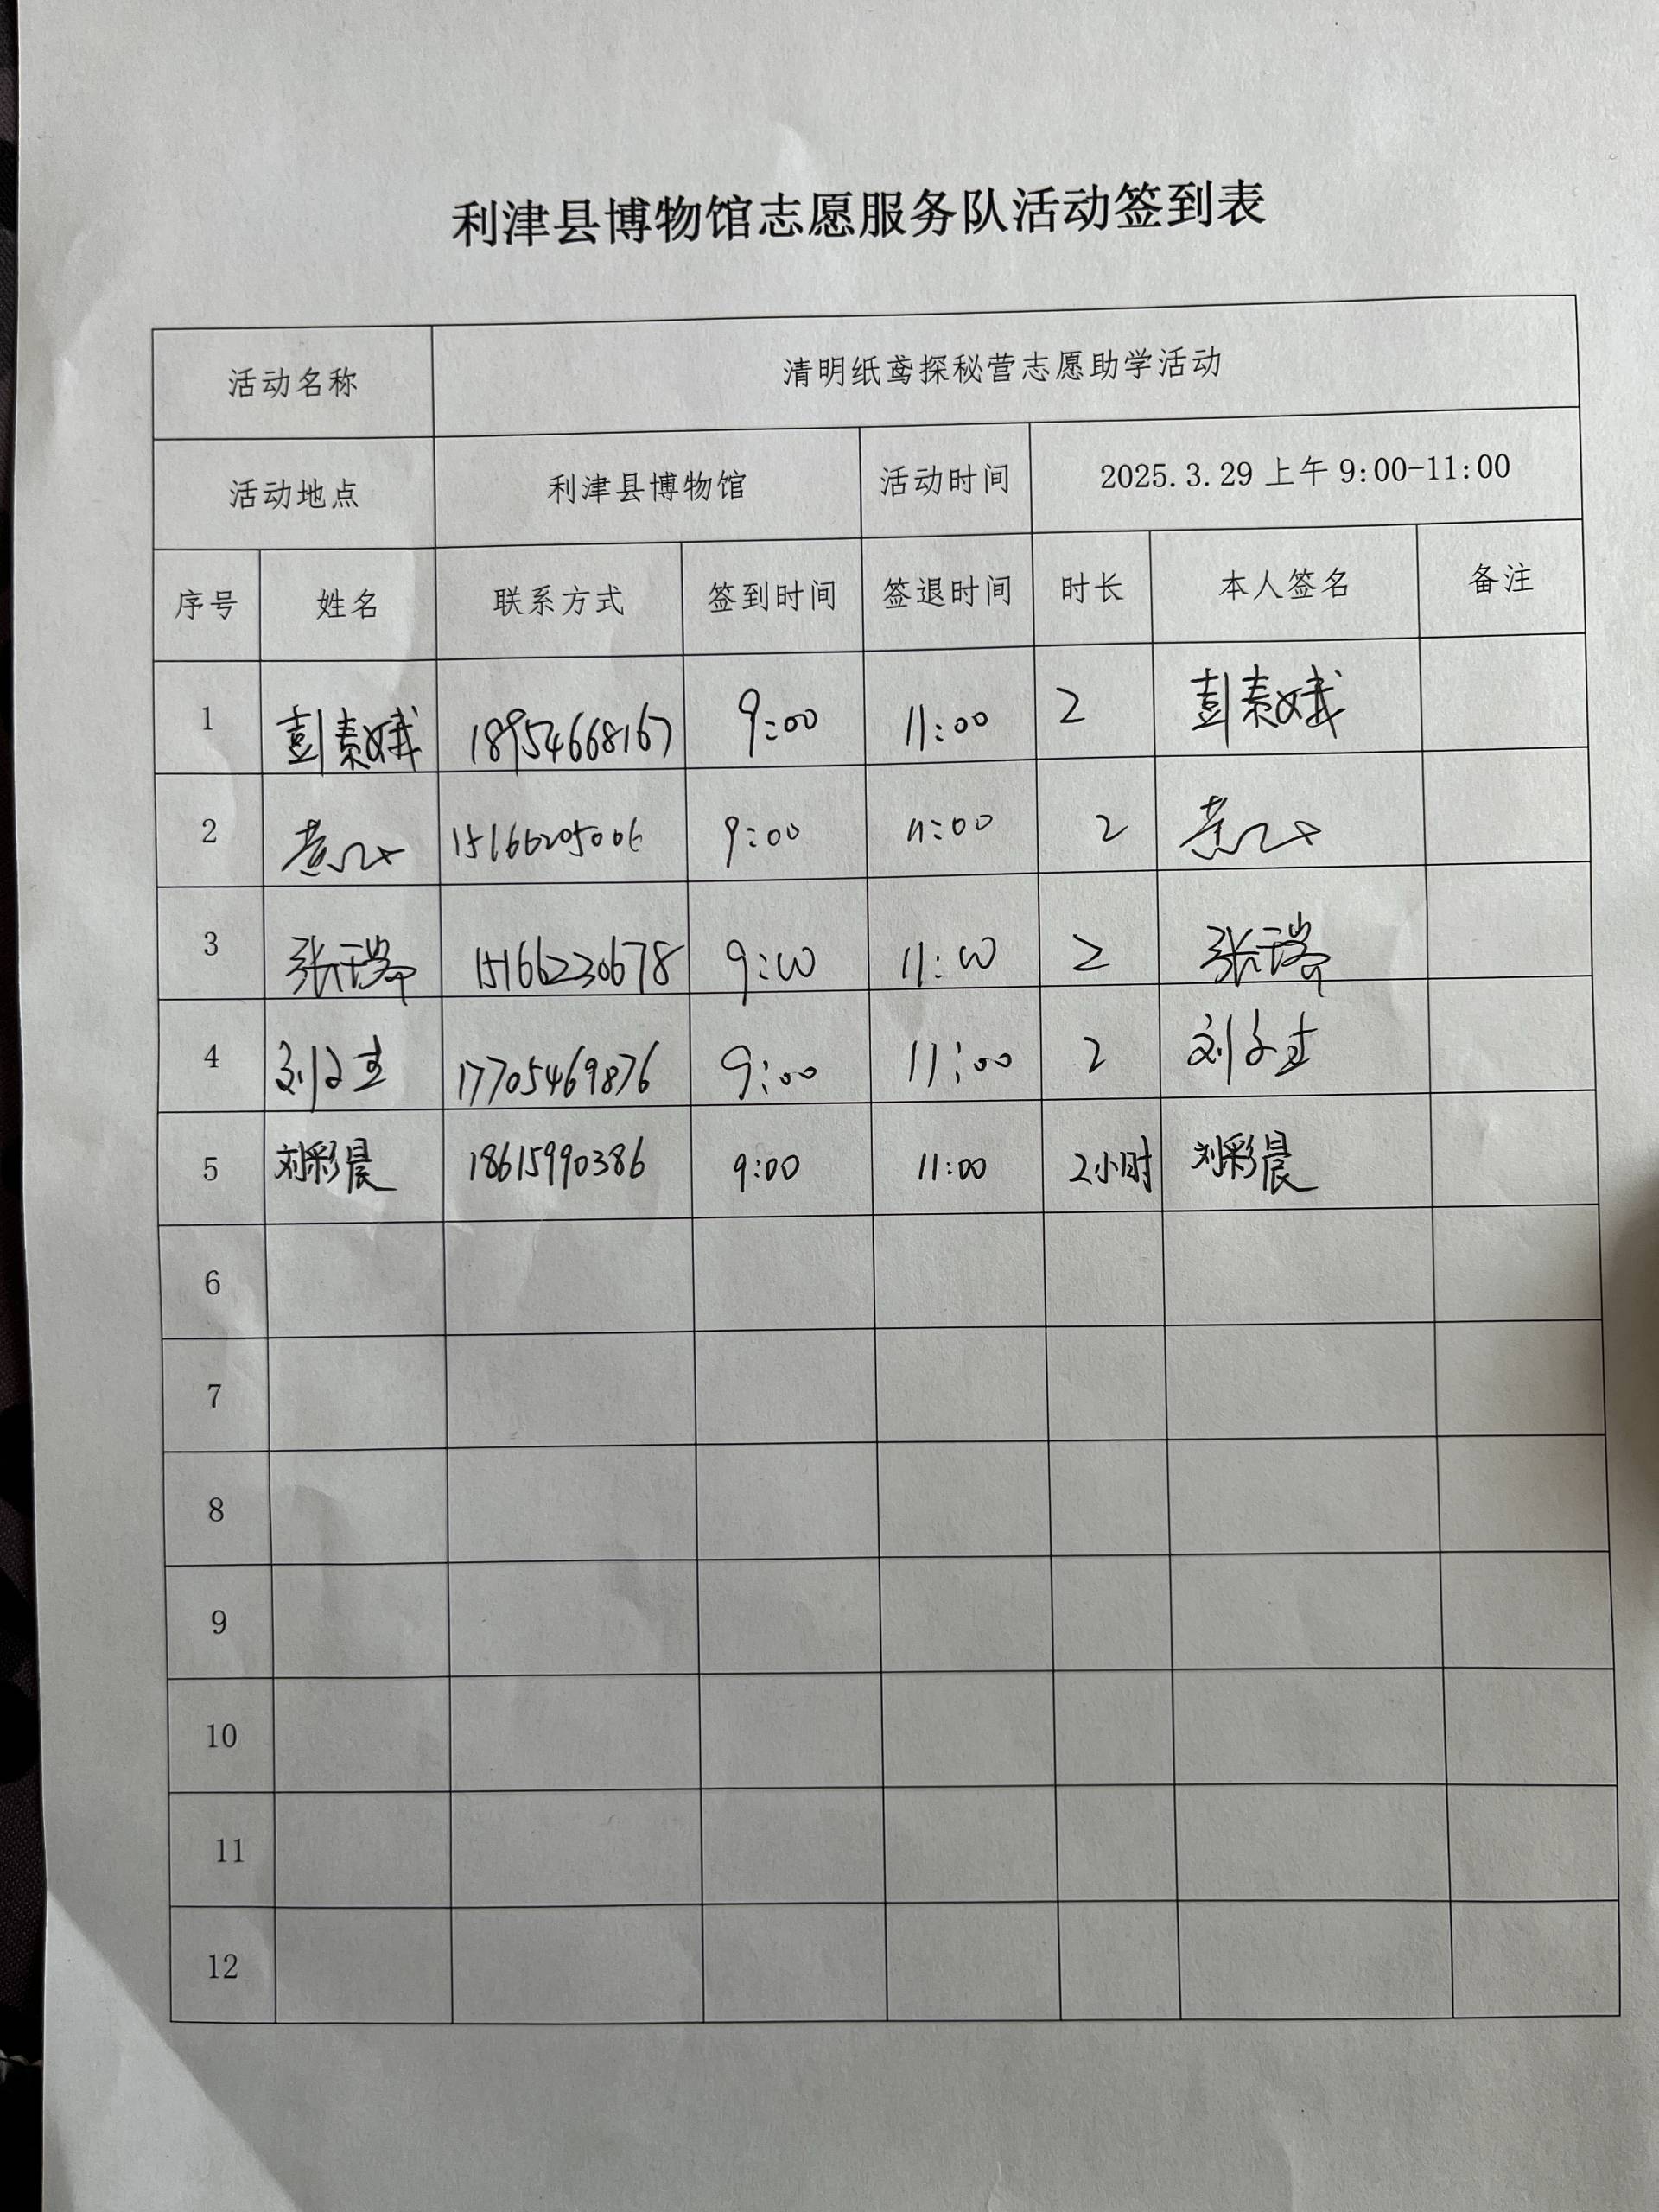 利津县博物馆志愿服务队活动签到表
活动名称 清明纸鸢探秘营志愿助学活动
活动地点 利津县博物馆 活动时间 2025.3.29 上午 9:00-11:00
序号 姓名 联系方式 签到时间 签退时间 时长 本人签名 备注
1 彭素娥 18954668167 9:00 11:00 2 彭素娥
2 15166205006 9:00 11:00 2
3 张瑞 15166230678 9:00 11:00 2 张瑞
4 刘 17705469876 9:00 11:00 2 刘
5 刘彩晨 18615990386 9:00 11:00 2小时 刘彩晨
6
7
8
9
10
11
12